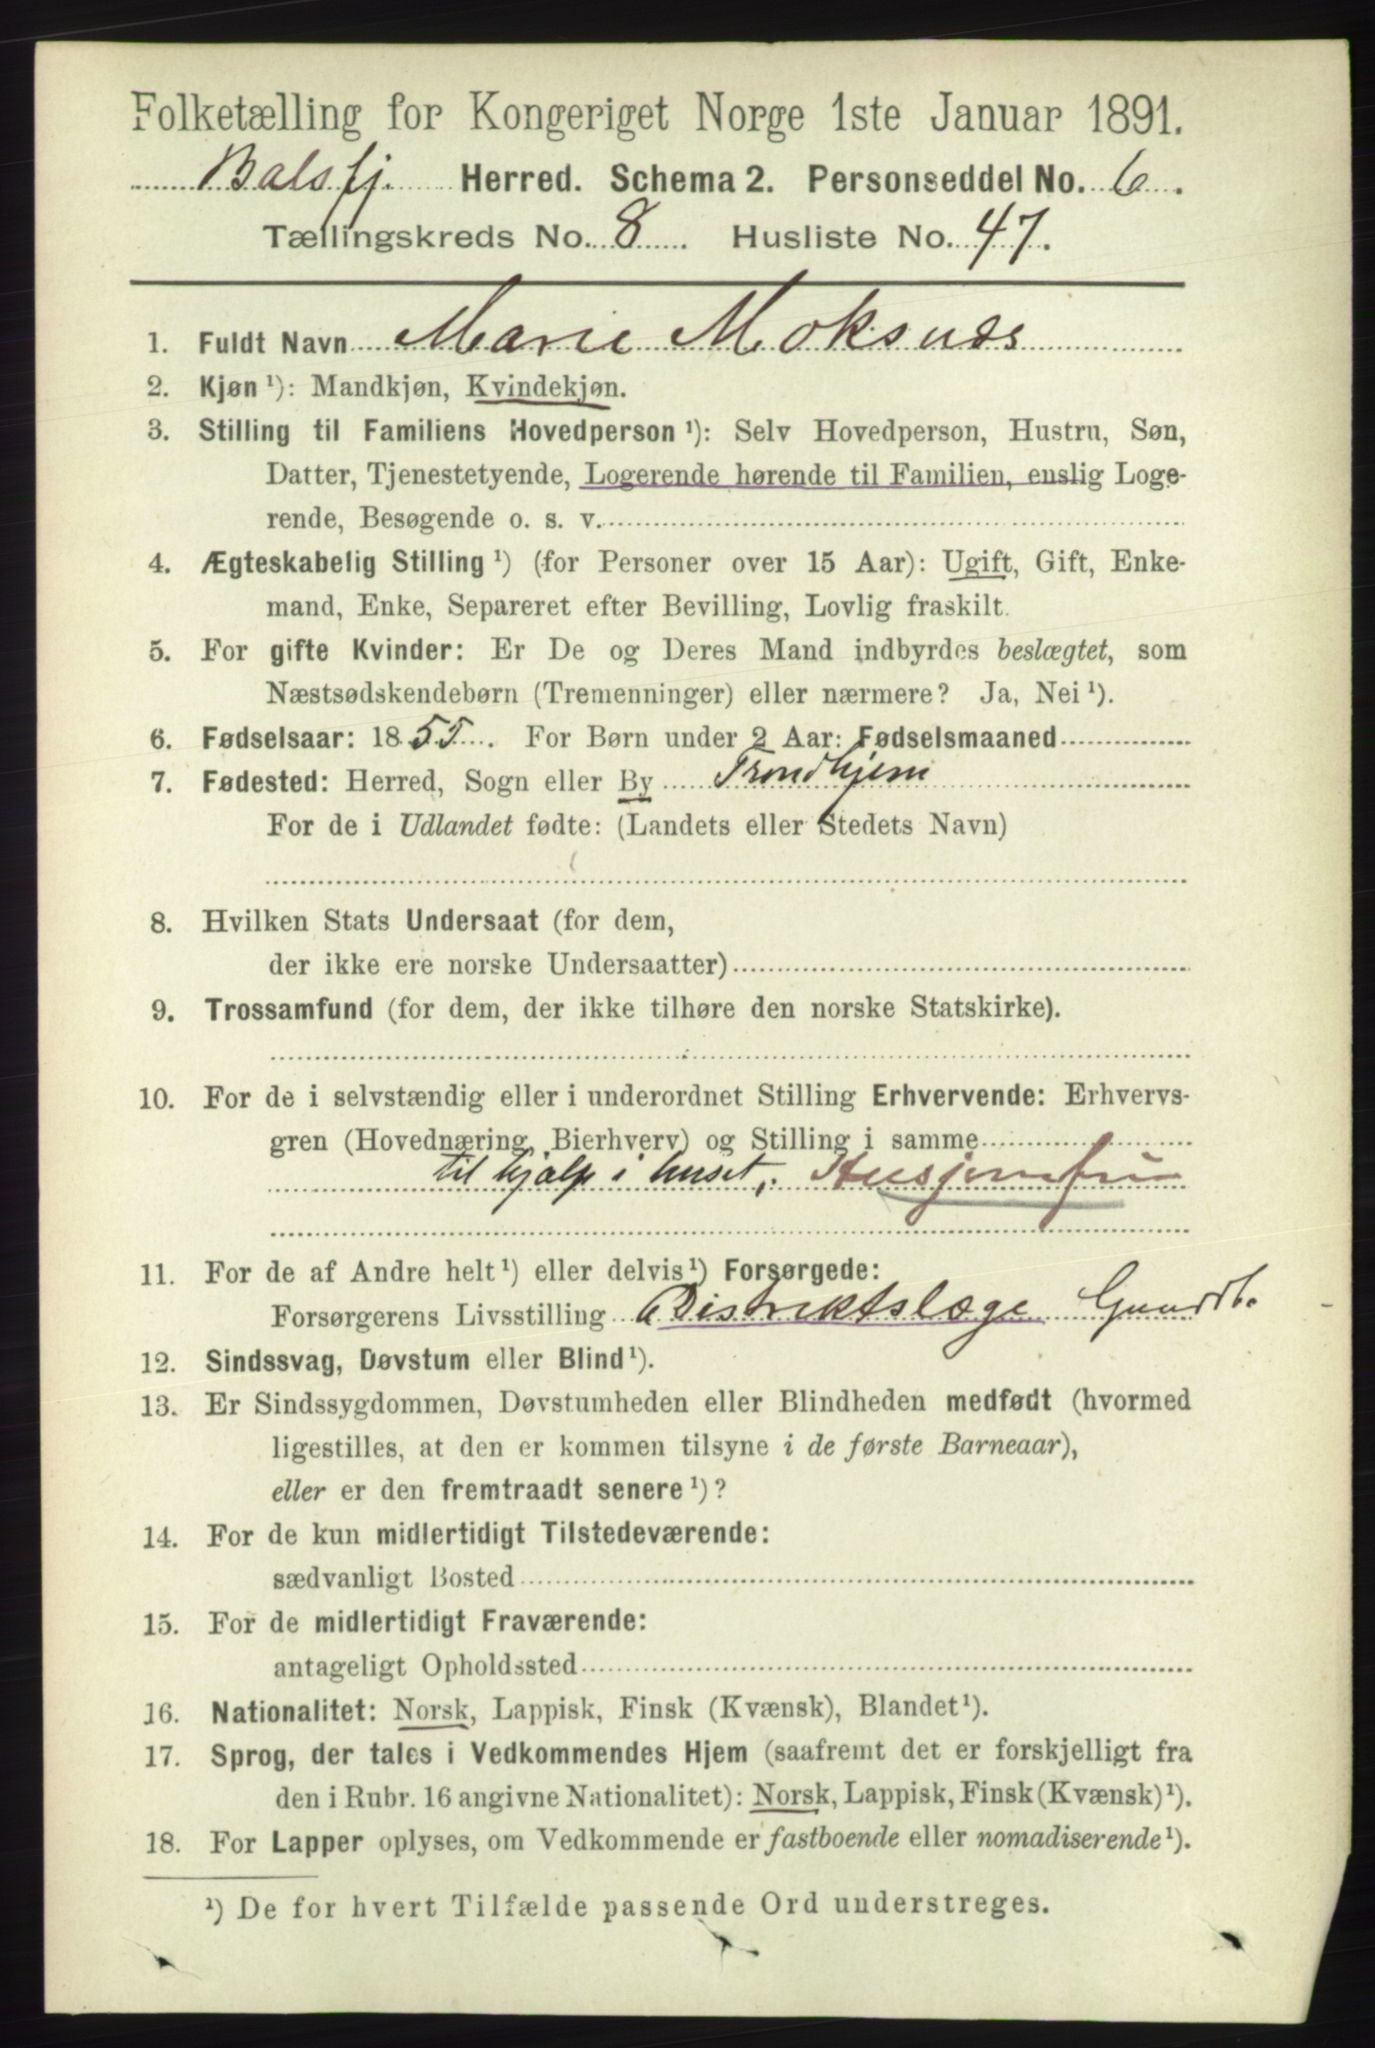 Folketælling for Kongeriget Norge 1ste Januar 1891.
Balsfj. Herred. Schema 2. Personseddel No. 6.
Tællingskreds No. 8. Husliste No. 47.
1. Fuldt Navn Marie Moksnæs
2. Kjøn ¹): Mandkjøn, Kvindekjøn.
3. Stilling til Familiens Hovedperson ¹): Selv Hovedperson, Hustru, Søn,
Datter, Tjenestetyende, Logerende hørende til Familien, enslig Loge-
rende, Besøgende o. s. v.
4. Ægteskabelig Stilling ¹) (for Personer over 15 Aar): Ugift, Gift, Enke-
mand, Enke, Separeret efter Bevilling, Lovlig fraskilt.
5. For gifte Kvinder: Er De og Deres Mand indbyrdes beslægtet, som
Næstsødskendebørn (Tremenninger) eller nærmere? Ja, Nei ¹).
6. Fødselsaar: 1855. For Børn under 2 Aar: Fødselsmaaned
7. Fødested: Herred, Sogn eller By Trondhjem
For de i Udlandet fødte: (Landets eller Stedets Navn)
8. Hvilken Stats Undersaat (for dem,
der ikke ere norske Undersaatter)
9. Trossamfund (for dem, der ikke tilhøre den norske Statskirke).
10. For de i selvstændig eller i underordnet Stilling Erhvervende: Erhvervs-
gren (Hovednæring, Bierhverv) og Stilling i samme
til hjælp i huset,
11. For de af Andre helt ¹) eller delvis ¹) Forsørgede:
Forsørgerens Livsstilling Distriktslæge
12. Sindssvag, Døvstum eller Blind ¹).
13. Er Sindssygdommen, Døvstumheden eller Blindheden medfødt (hvormed
ligestilles, at den er kommen tilsyne i de første Barneaar),
eller er den fremtraadt senere ¹)?
14. For de kun midlertidigt Tilstedeværende:
sædvanligt Bosted
15. For de midlertidigt Fraværende:
antageligt Opholdssted
16. Nationalitet: Norsk, Lappisk, Finsk (Kvænsk), Blandet ¹).
17. Sprog, der tales i Vedkommendes Hjem (saafremt det er forskjelligt fra
den i Rubr. 16 angivne Nationalitet): Norsk, Lappisk, Finsk (Kvænsk) ¹).
18. For Lapper oplyses, om Vedkommende er fastboende eller nomadiserende ¹).
¹) De for hvert Tilfælde passende Ord understreges.